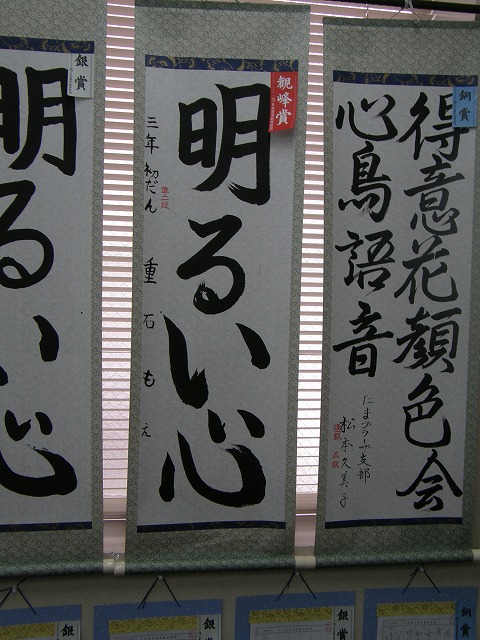 銅賞
得意花顔色会
心鳥語音
たまプラーザ支部
松本久美子
観峰賞
明るい心
三年 初だん 重石もえ
準二段
銀賞
明るい心
銀賞
銀賞
銀賞
銅賞